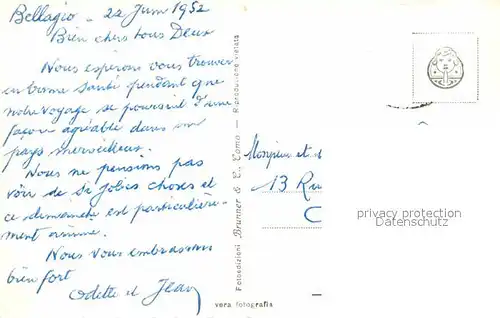 Bellagio - 22 Juin 1952
Bien chers tous Deux
Nous esperons vous trouver
en bonne santé pendant que
notre voyage se poursuit d'une
façon agréable dans un
pays merveilleux.
Nous ne pensions pas
voir de si jolies choses et
ce dimanche est particulière-
ment animé.
Nous vous embrassons
bien fort
Odette et Jean
Fotoedizioni Brunner & C., Como - Riproduzione vietata
vera fotografia
Monsieur et
13 Ru
C
privacy protection
Datenschutz